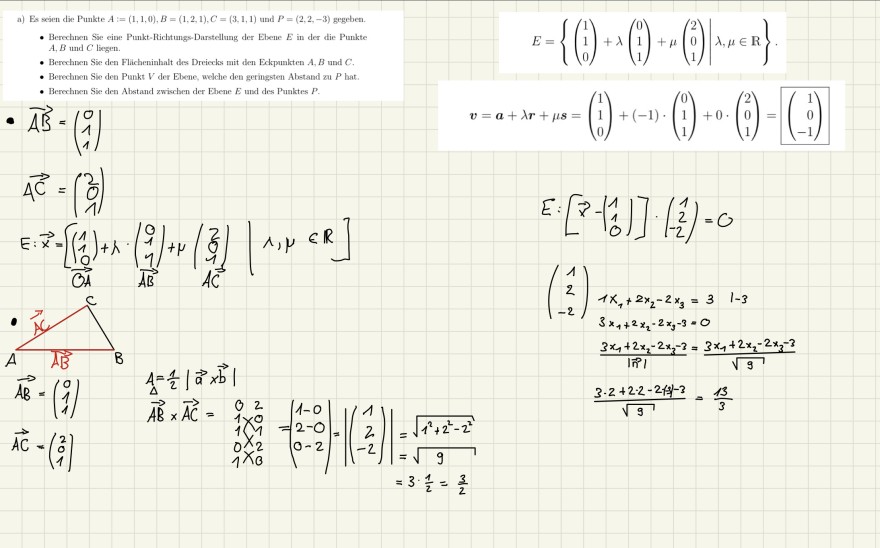 a) Es seien die Punkte A := (1, 1, 0), B = (1, 2, 1), C = (3, 1, 1) und P = (2, 2, −3) gegeben.
• Berechnen Sie eine Punkt-Richtungs-Darstellung der Ebene E in der die Punkte
A, B und C liegen.
• Berechnen Sie den Flächeninhalt des Dreiecks mit den Eckpunkten A, B und C.
• Berechnen Sie den Punkt V der Ebene, welche den geringsten Abstand zu P hat.
• Berechnen Sie den Abstand zwischen der Ebene E und des Punktes P.
E = { (1 1 0) + λ (0 1 1) + μ (2 0 1) | λ, μ ∈ ℝ } .
v = a + λr + μs = (1 1 0) + (−1) · (0 1 1) + 0 · (2 0 1) = (1 0 −1)
• AB = (0 1 1)
AC = (2 0 1)
E: x = [ (1 1 0) + λ · (0 1 1) + μ (2 0 1) | λ, μ ∈ ℝ ]
OA AB AC
•
C
AC
A AB B
AB = (0 1 1)
AC = (2 0 1)
A = 1/2 | a x b |
Δ
AB x AC =
0 2
1 0
1 1
0 2
1 0
= (1-0 2-0 0-2) = | (1 2 -2) | = √1² + 2² - 2²
= √9
= 3 · 1/2 = 3/2
E: [ x - (1 1 0) ] · (1 2 -2) = 0
(1 2 -2) 1x₁ + 2x₂ - 2x₃ = 3 |-3
3x₁ + 2x₂ - 2x₃ - 3 = 0
3x₁ + 2x₂ - 2x₃ - 3 / |n| = 3x₁ + 2x₂ - 2x₃ - 3 / √9
3·2 + 2·2 - 2(-3) - 3 / √9 = 13/3